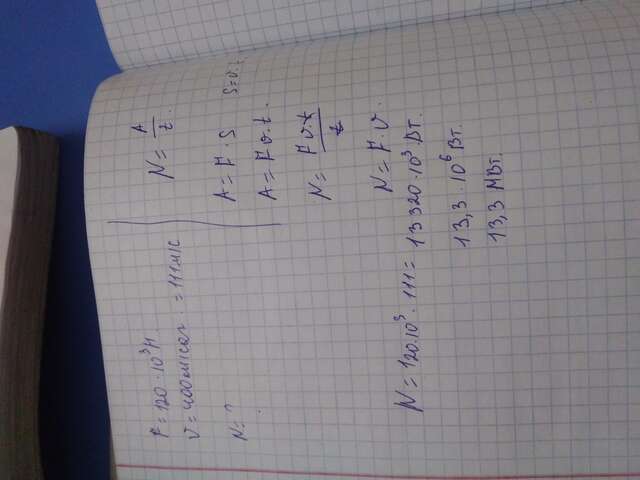 F = 120 · 10³ Н.
v = 400 м/сог. = 111 м/с
N = ?
N = A/t.
A = F · S   S = v · t
A = F v · t.
N = F v · t / t
N = F · v.
N = 120 · 10³ · 111 = 13 320 · 10³ Вт.
13,3 · 10⁶ Вт.
13,3 МВт.